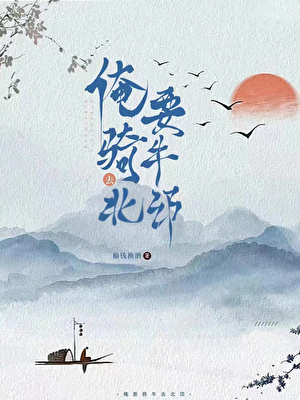 俺要骑牛去北邙
榆钱换酒 著
·俺要骑牛去北邙·